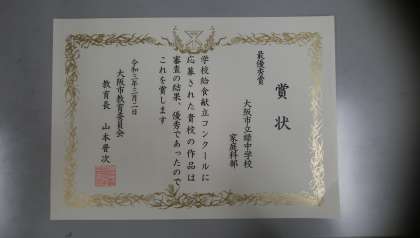 賞状
最優秀賞
大阪市立緑中学校
家庭科部
学校給食献立コンクールに
応募された貴校の作品は
審査の結果、優秀であったので
これを賞します
令和三年三月二日
大阪市教育委員会
教育長 山本晋次